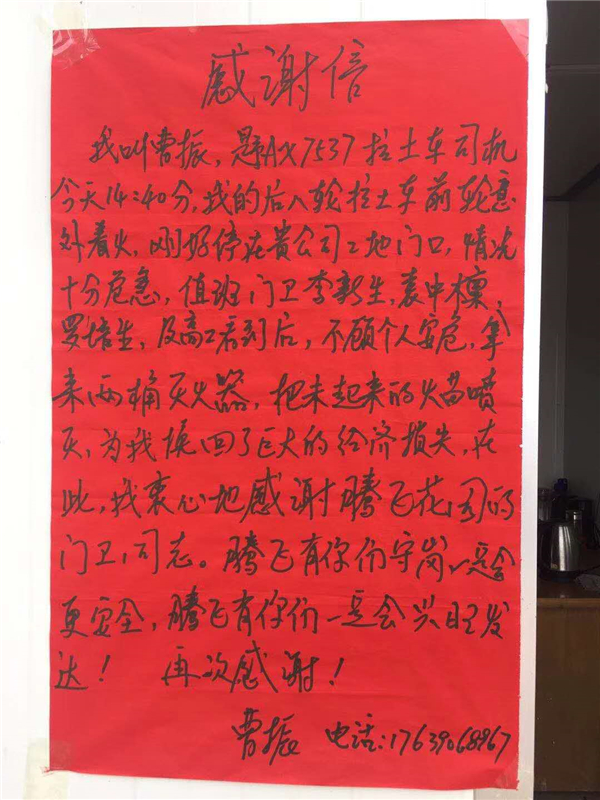 感谢信
我叫曹振，是豫AX7537拉土车司机
今天14:40分，我的后八轮拉土车前轮意
外着火，刚好停在贵公司工地门口，情况
十分危急，值班门卫李新生，袁中檩，
罗培生，及高工看到后，不顾个人安危，拿
来两桶灭火器，把未起来的火苗喷
灭，为我换回了巨大的经济损失，在
此，我衷心地感谢腾飞花园的
门卫同志。腾飞有你们守岗一定会
更安全，腾飞有你们一定会兴旺发
达！ 再次感谢！
曹振 电话:17639068967